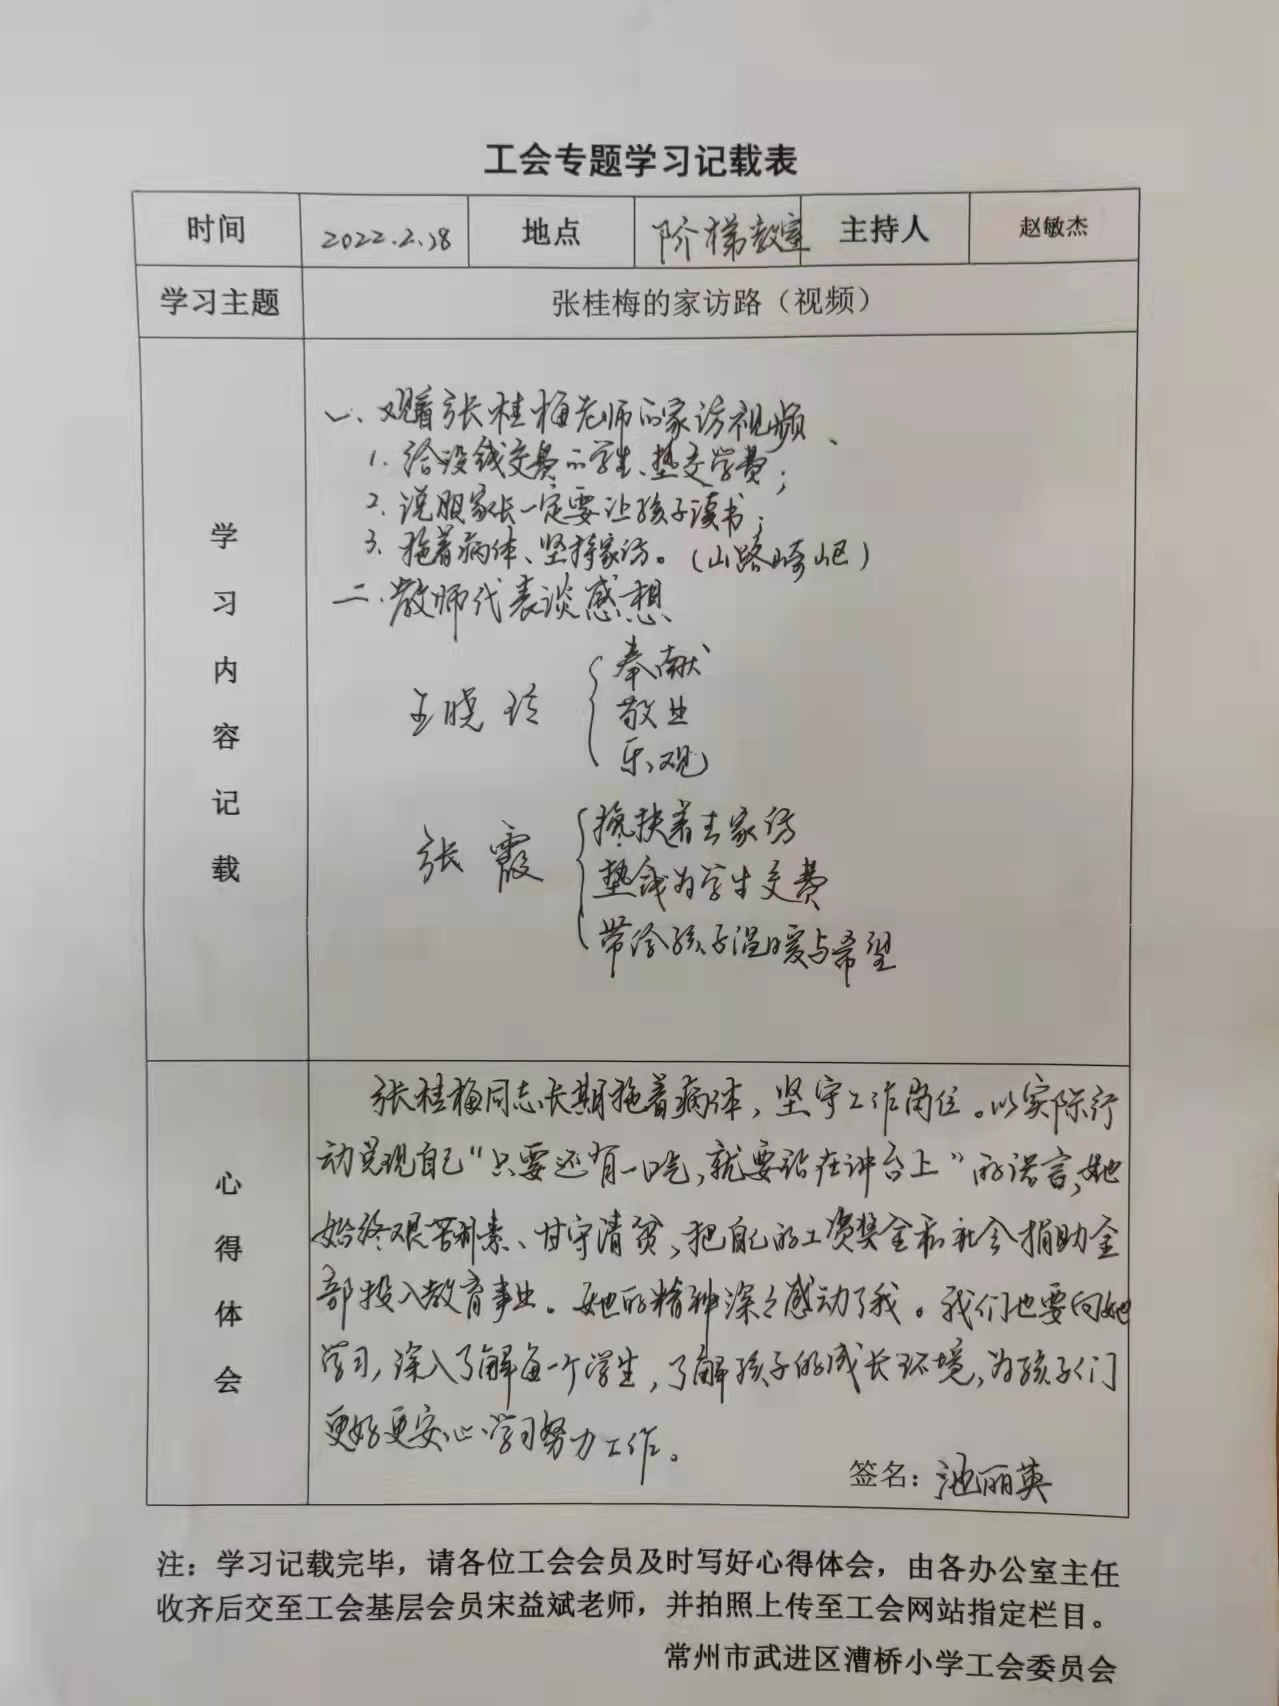 工会专题学习记载表
时间 2022.2.18 地点 阶梯教室 主持人 赵敏杰
学习主题 张桂梅的家访路（视频）
学习内容记载
一、观看张桂梅老师的家访视频、
1. 给没钱交费的学生、垫交学费；
2. 说服家长一定要让孩子读书；
3. 拖着病体、坚持家访。（山路崎岖）
二、教师代表谈感想
王晓玲
奉献
敬业
乐观
张霞
搀扶着去家访
垫钱为学生交费
带给孩子温暖与希望
心得体会
张桂梅同志长期拖着病体，坚守工作岗位。以实际行
动兑现自己“只要还有一口气，就要站在讲台上”的诺言，她
始终艰苦朴素、甘守清贫，把自己的工资奖金和社会捐助全
部投入教育事业。她的精神深深感动了我。我们也要向她
学习，深入了解每一个学生，了解孩子的成长环境，为孩子们
更好更安心学习努力工作。
签名：池丽英
注：学习记载完毕，请各位工会会员及时写好心得体会，由各办公室主任
收齐后交至工会基层会员宋益斌老师，并拍照上传至工会网站指定栏目。
常州市武进区漕桥小学工会委员会